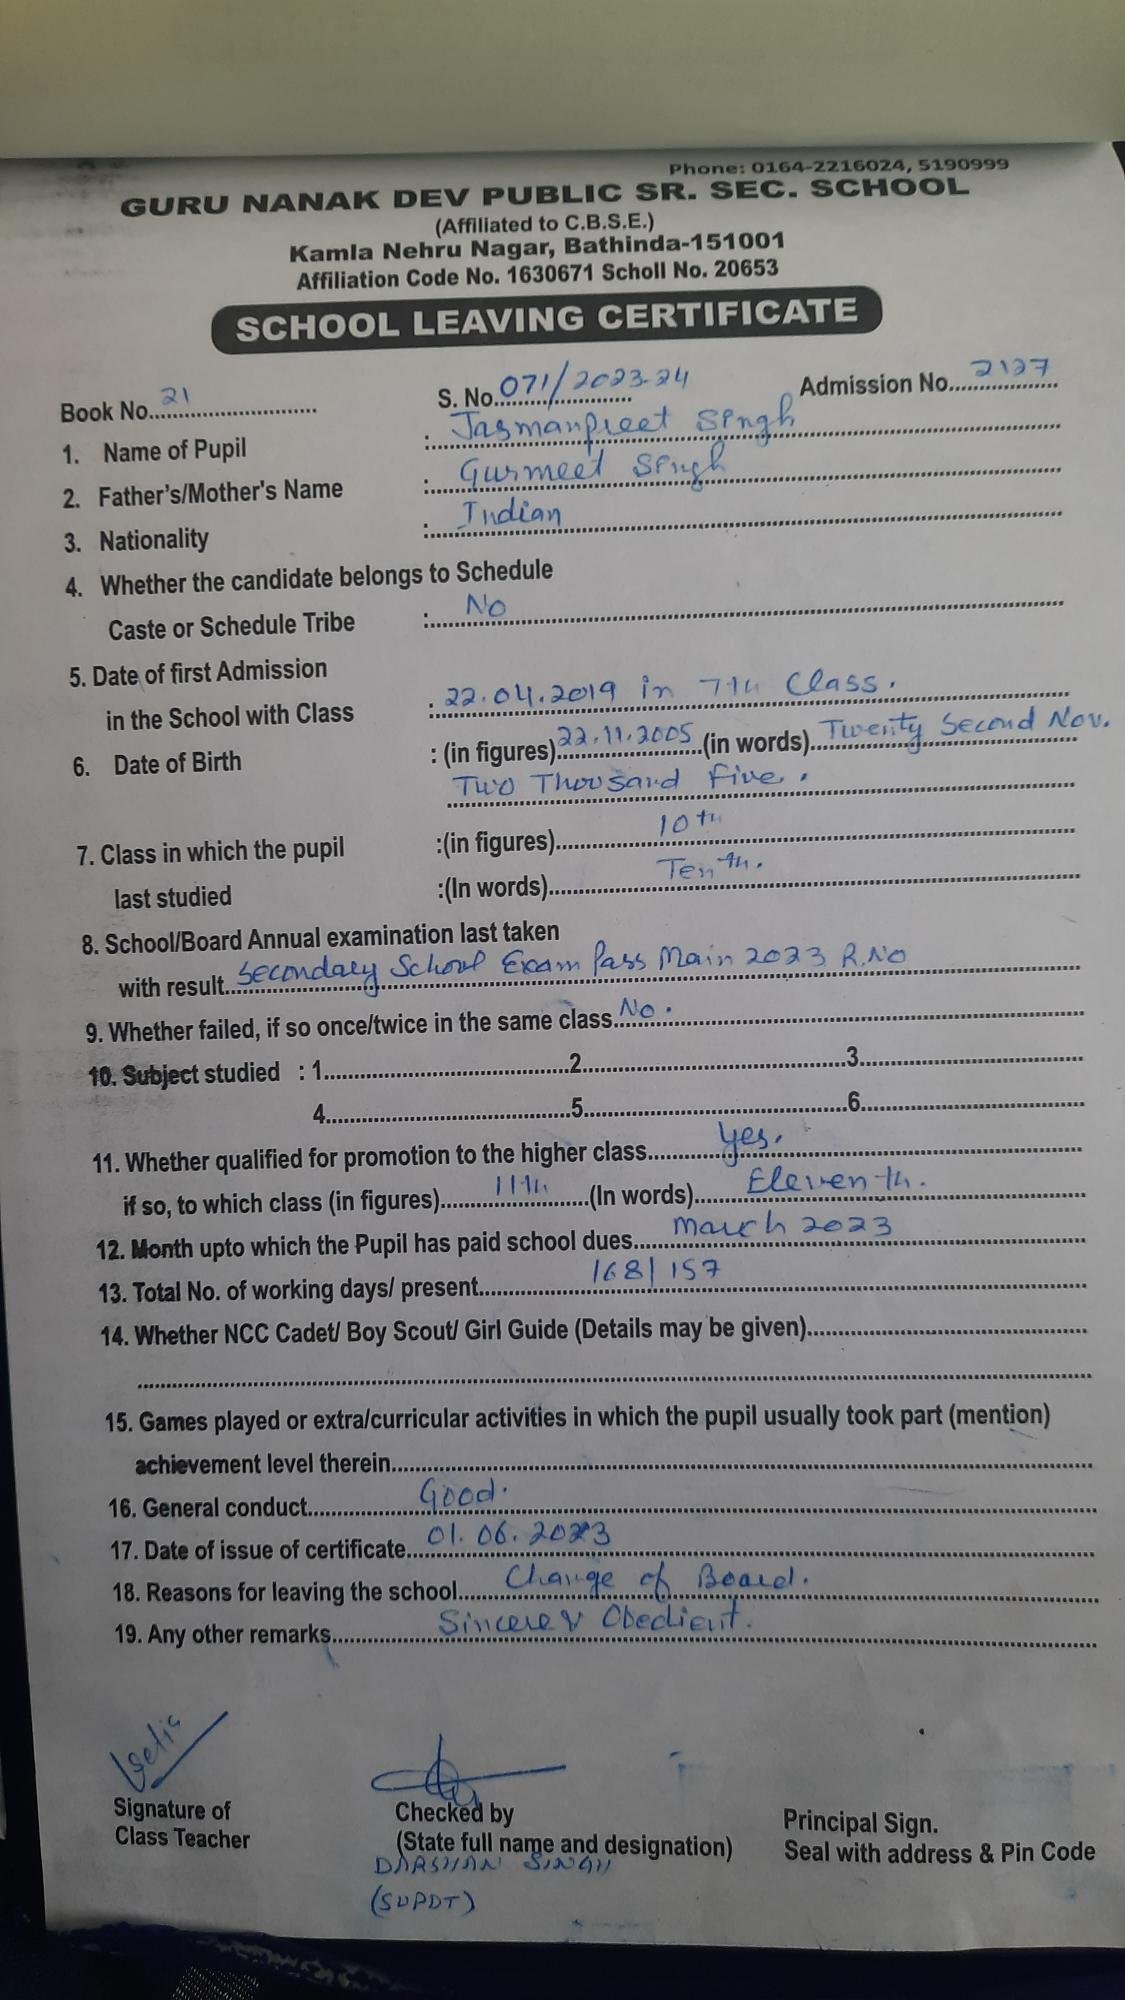 Phone: 0164-2216024, 5190999
GURU NANAK DEV PUBLIC SR. SEC. SCHOOL
(Affiliated to C.B.S.E.)
Kamla Nehru Nagar, Bathinda-151001
Affiliation Code No. 1630671 Scholl No. 20653
SCHOOL LEAVING CERTIFICATE
Book No. 21 S. No. 071/2023-24 Admission No. 2127
1. Name of Pupil : Jasmanpreet Singh
2. Father's/Mother's Name : Gurmeet Singh
3. Nationality : Indian
4. Whether the candidate belongs to Schedule
Caste or Schedule Tribe : No
5. Date of first Admission
in the School with Class : 22.04.2019 in 7th Class.
6. Date of Birth : (in figures) 22.11.2005 (in words) Twenty Second Nov.
Two Thousand Five.
7. Class in which the pupil :(in figures) 10th
last studied :(In words) Tenth.
8. School/Board Annual examination last taken
with result Secondary School Exam Pass Main 2023 R.No
9. Whether failed, if so once/twice in the same class No.
10. Subject studied : 1 2 3
4 5 6
11. Whether qualified for promotion to the higher class Yes.
if so, to which class (in figures) 11th (In words) Eleventh.
12. Month upto which the Pupil has paid school dues March 2023
13. Total No. of working days/ present 168/157
14. Whether NCC Cadet/ Boy Scout/ Girl Guide (Details may be given)
15. Games played or extra/curricular activities in which the pupil usually took part (mention)
achievement level therein
16. General conduct Good.
17. Date of issue of certificate 01.06.2023
18. Reasons for leaving the school Change of Board.
19. Any other remarks Sincere & Obedient.
Signature of Checked by Principal Sign.
Class Teacher (State full name and designation) Seal with address & Pin Code
DARSHAN SINGH
(SUPDT)